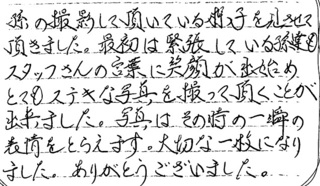 孫の撮影して頂いている様子を見させて
頂きました。最初は緊張している孫達も
スタッフさんの言葉に笑顔が出始め
とてもステキな写真を撮って頂くことが
出来ました。写真はその時の一瞬の
表情をとらえます。大切な一枚になり
ました。ありがとうございました。